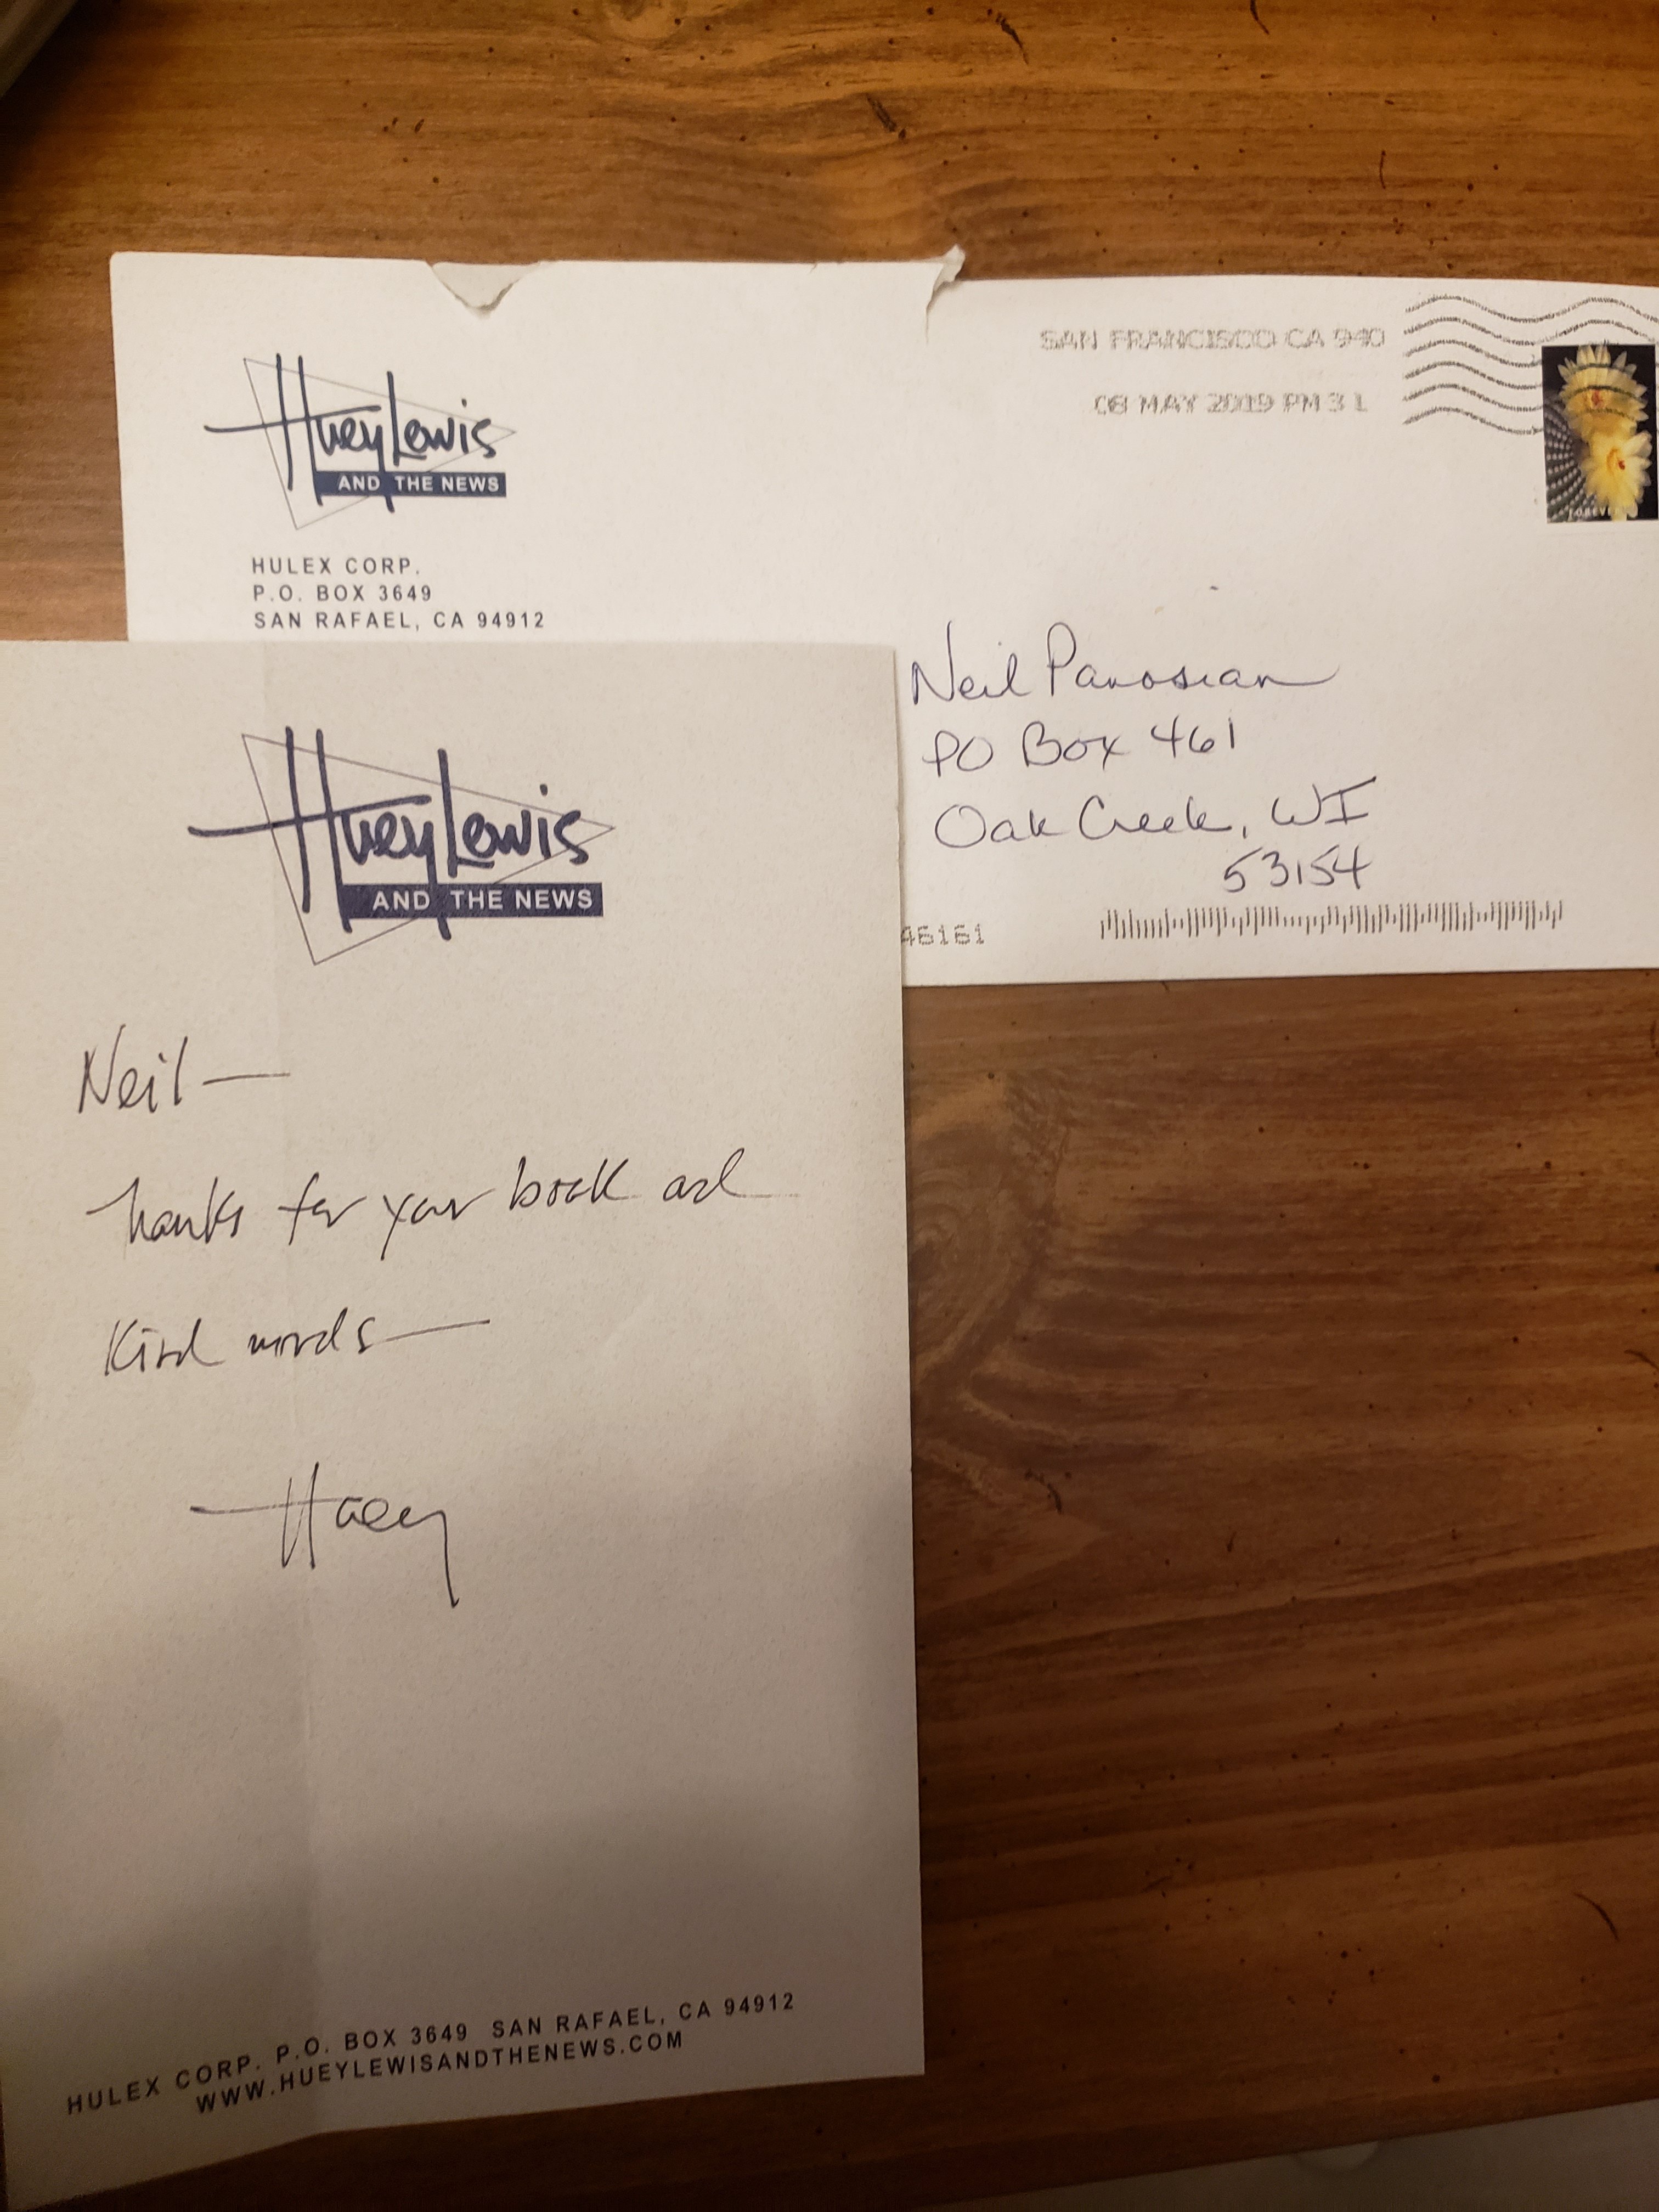 Huey Lewis
AND THE NEWS
HULEX CORP.
P.O. BOX 3649
SAN RAFAEL, CA 94912
SAN FRANCISCO CA 940
08 MAY 2019 PM 3 L
FOREVER
Neil Panosian
PO Box 461
Oak Creek, WI
53154
46161
Huey Lewis
AND THE NEWS
Neil—
Thanks for your book and
Kind words—
Huey
HULEX CORP. P.O. BOX 3649 SAN RAFAEL, CA 94912
WWW.HUEYLEWISANDTHENEWS.COM